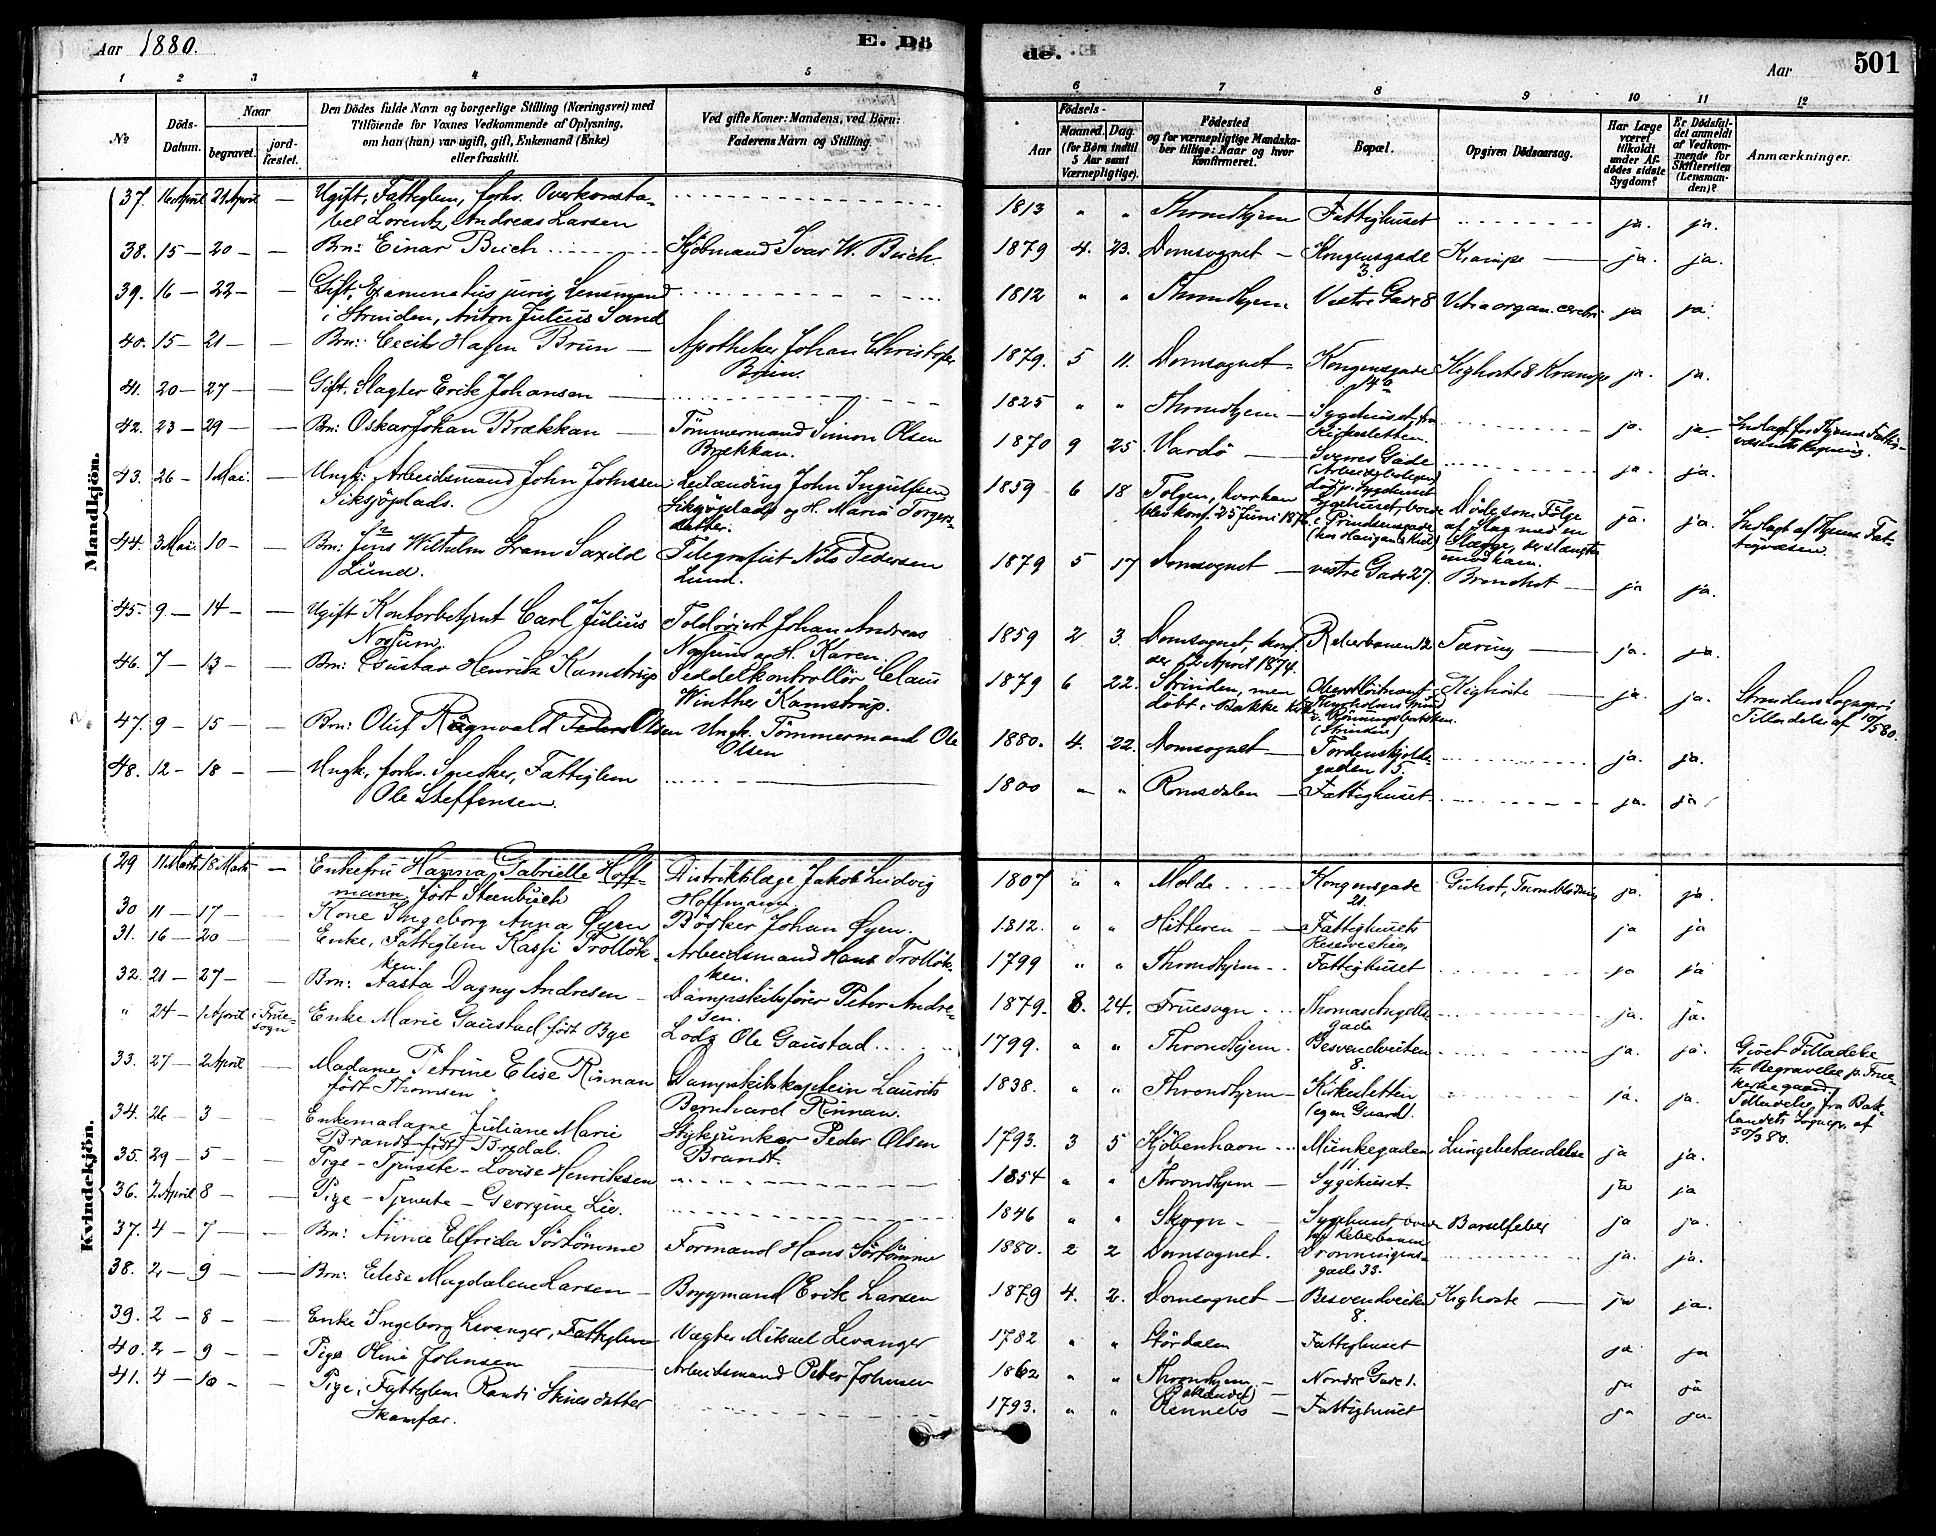 Aar 1880.
E. Dö
de.
Aar
501
1 2 3 4 5 6 7 8 9 10 11 12
No
Döds-
Datum.
Naar
begravet.
jord-
fæstet.
Den Dödes fulde Navn og borgerlige Stilling (Næringsvei) med
Tilföiende for Voxnes Vedkommende af Oplysning,
om han (hun) var ugift, gift, Enkemand (Enke)
eller fraskilt.
Ved gifte Koner: Mandens, ved Börn:
Faderens Navn og Stilling.
Födsels-
Aar
Maaned.
Dag.
(for Börn indtil
5 Aar samt
Værnepligtige).
Födested
og for værnepligtige Mandska-
ber tillige: Naar og hvor
konfirmeret.
Bopæl.
Opgiven Dödsaarsag.
Har Læge
været
tilkaldt
under Af-
dödes sidste
Sygdom?
Er Dödsfal-
det anmeldt
af Vedkom-
mende for
Skifteretten
(Lensman-
den)?
Anmærkninger.
Mandkjön.
37. 16 April 21 April — Ugift, Fattiglem, forhv. Overkonsta-
bel Lorentz Andreas Larsen
1813 " " Throndhjem Fattighuset ja. ja.
38. 15 — 20 — — Brn: Einar Buch Kjöbmand Ivar W. Buch.
1879 4. 23. Domsognet — Kongensgade
3. Krampe — ja. ja.
39. 16 — 22 — — Gift, Examinatus juris, Lensmand
i Strinden, Anton Julius Sand
1812 " " Throndhjem Vestre Gade 8 Vit. organ. cerebri ja ja.
40. 15 — 21 — Brn: Hagen Brun — Apotheker Johan Christopher
Brun.
1879. 5 11. Domsognet — Kongensgade
14 b Kighoste & Krampe ja. ja.
41. 20 — 27 — — Gift, Slagter Erik Johansen —
1825 " " Throndhjem — Sygehuset, fra
Kirkesletten. ja. ja Indlagt for Thjems Fattig-
væsens Regning.
42. 23 — 29 — — Brn: Oskar Johan Brækkan — Tömmermand Simon Olsen
Brækkan.
1870 9 25 Vardö — Sverres Gade
(Arbeiderboligen)
död p. Sygehuset ja. ja.
43. 26 — 1 Mai. — Ungk: Arbeidsmand John Johnsen
Siksjöplads. Leilænding John Ingulfsen
Siksjöplads og H. Maria Torgers-
datter.
1859 6 18 Tolgen, hvor han
blev konf. 25 Juni 187 Sygehuset, boede
i Prindsensgade
Döde som Fölge
af Slag med en
Slægge, der slængtes
imod ham. ja. ja. Indlagt af Thjems Fat-
tigvæsen.
44. 3 Mai. 10 — — Brn: Jens Wilhelm Gram Saxild
Lund. Telegrafist Nils Pedersen
Lund.
1879 5 17 Domsognet — vestre Gade 27. Bronchit — ja ja.
45. 9 — 14 — — Ugift Kontorbetjent Carl Julius
Nossum. Toldrörert Johan Andreas
Nossum og H. Karen.
1859 2 3. Domsognet, konf.
der 12 April 1874. Reberbanen 12 Tæring — ja. ja.
46. 7 — 13 — — Brn: Gustav Henrik Kamstrup Seddelkontrollör Claus
Winther Kamstrup.
1879 6 22. Strinden, men
döbt i Bakke Kirke
(Strinden) Kighoste — ja. ja. Strindens Sognepr's
Tilladelse af 10/5 80.
47. 9 — 15 — — Brn: Oluf Ragnvald Peders Olsen Ungk. Tömmermand Ole
Olsen
1880. 4. 22. Domsognet — Tordenskjolds-
gaden 5. ja. ja.
48. 12 — 18 — — Ungk. forhv. Snedker, Fattiglem
Ole Steffensen.
1800 " " Romsdalen — Fattighuset ja. ja
Kvindekjön.
29 11 Marts 18 Marts — Enkefru Hanna Gabrielle Hoff-
mann född Steenbuch Distriktslæge Jakob Ludvig
Hoffmann.
1807 " " Molde Kongensgade
21. ja. ja.
30 11 — 17 — — Kone Ingeborg Anna Öyen Bödker Johan Öyen.
1812. " " Hitteren — Fattighusets
ja ja
31. 16 — 20 — Enke, Fattiglem Kassi Trollök-
ken. Arbeidsmand Hans Trollök-
ken.
1799 " " Throndhjem Fattighuset ja ja
32. 21 — 27 — Brn: Aasta Dagny Andresen — Dampskibsförer Peter Andre-
sen.
1879. 8. 24. Fruesogn Thomas Angells
gade ja. ja.
" 24 — 1 April i Frue-
sogn Enke Marie Gaustad född Bye Lods Ole Gaustad
1799. " " Throndhjem. Besvendveiten
8. ja. ja. Givet Tilladelse
til Begravelse p. Frue
Kirkegaard,
Tilladelse fra Bak-
landets Sognepr. af
30/3 80.
33. 27 — 2 April — Madame Petrine Elise Rinnan
född Thomsen Dampskibskaptein Laurits
Bernhard Rinnan.
1838. " " Throndhjem — Kirkesletten
(egen Gaard). ja. ja.
34. 26 — 3 — Enkemadame Juliane Marie
Brandt född Bredal. Stykjunker Peder Olsen
Brandt.
1793. 3 5 Kjöbenhavn Munkegaden
11 Lungebetændelse ja ja.
35. 29 — 5 — — Pige — Tjeneste — Lovise Henriksen
1854 " " Throndhjem — Sygehuset. ja ja
36. 2 April 8 — — Pige — Tjeneste — Georgine Lie.
1846 " " Skogn — Sygehuset, boede
Reberbanen Barselfeber ja ja.
37. 4 — 7 — — Brn: Annie Elfrida Sörtömme Formand Hans Sörtömme
1880. 2 2 Domsognet. Dronningens-
gade 33. ja. ja.
38. 2 — 9 — — Brn: Elise Magdalene Larsen — Bryggmand Erik Larsen
1879 4. 2. Domsognet — Besvendveiten
8. Kighoste — ja ja.
39. 2 — 8 — — Enke Ingeborg Levanger, Fattiglem Vægter Mikael Levanger
1782 " " Stördalen Fattighuset ja ja
40. 2 — 9 — — Pige Oline Johnsen Arbeidsmand Peter Johnsen
1862 " " Throndhjem —
(Baklandet) Nordre Gade 1. ja ja
41. 4 — 10 — — Pige, Fattiglem Randi Skinesdatter
Skamfær.
1793. " " Rennebo — Fattighuset ja ja.